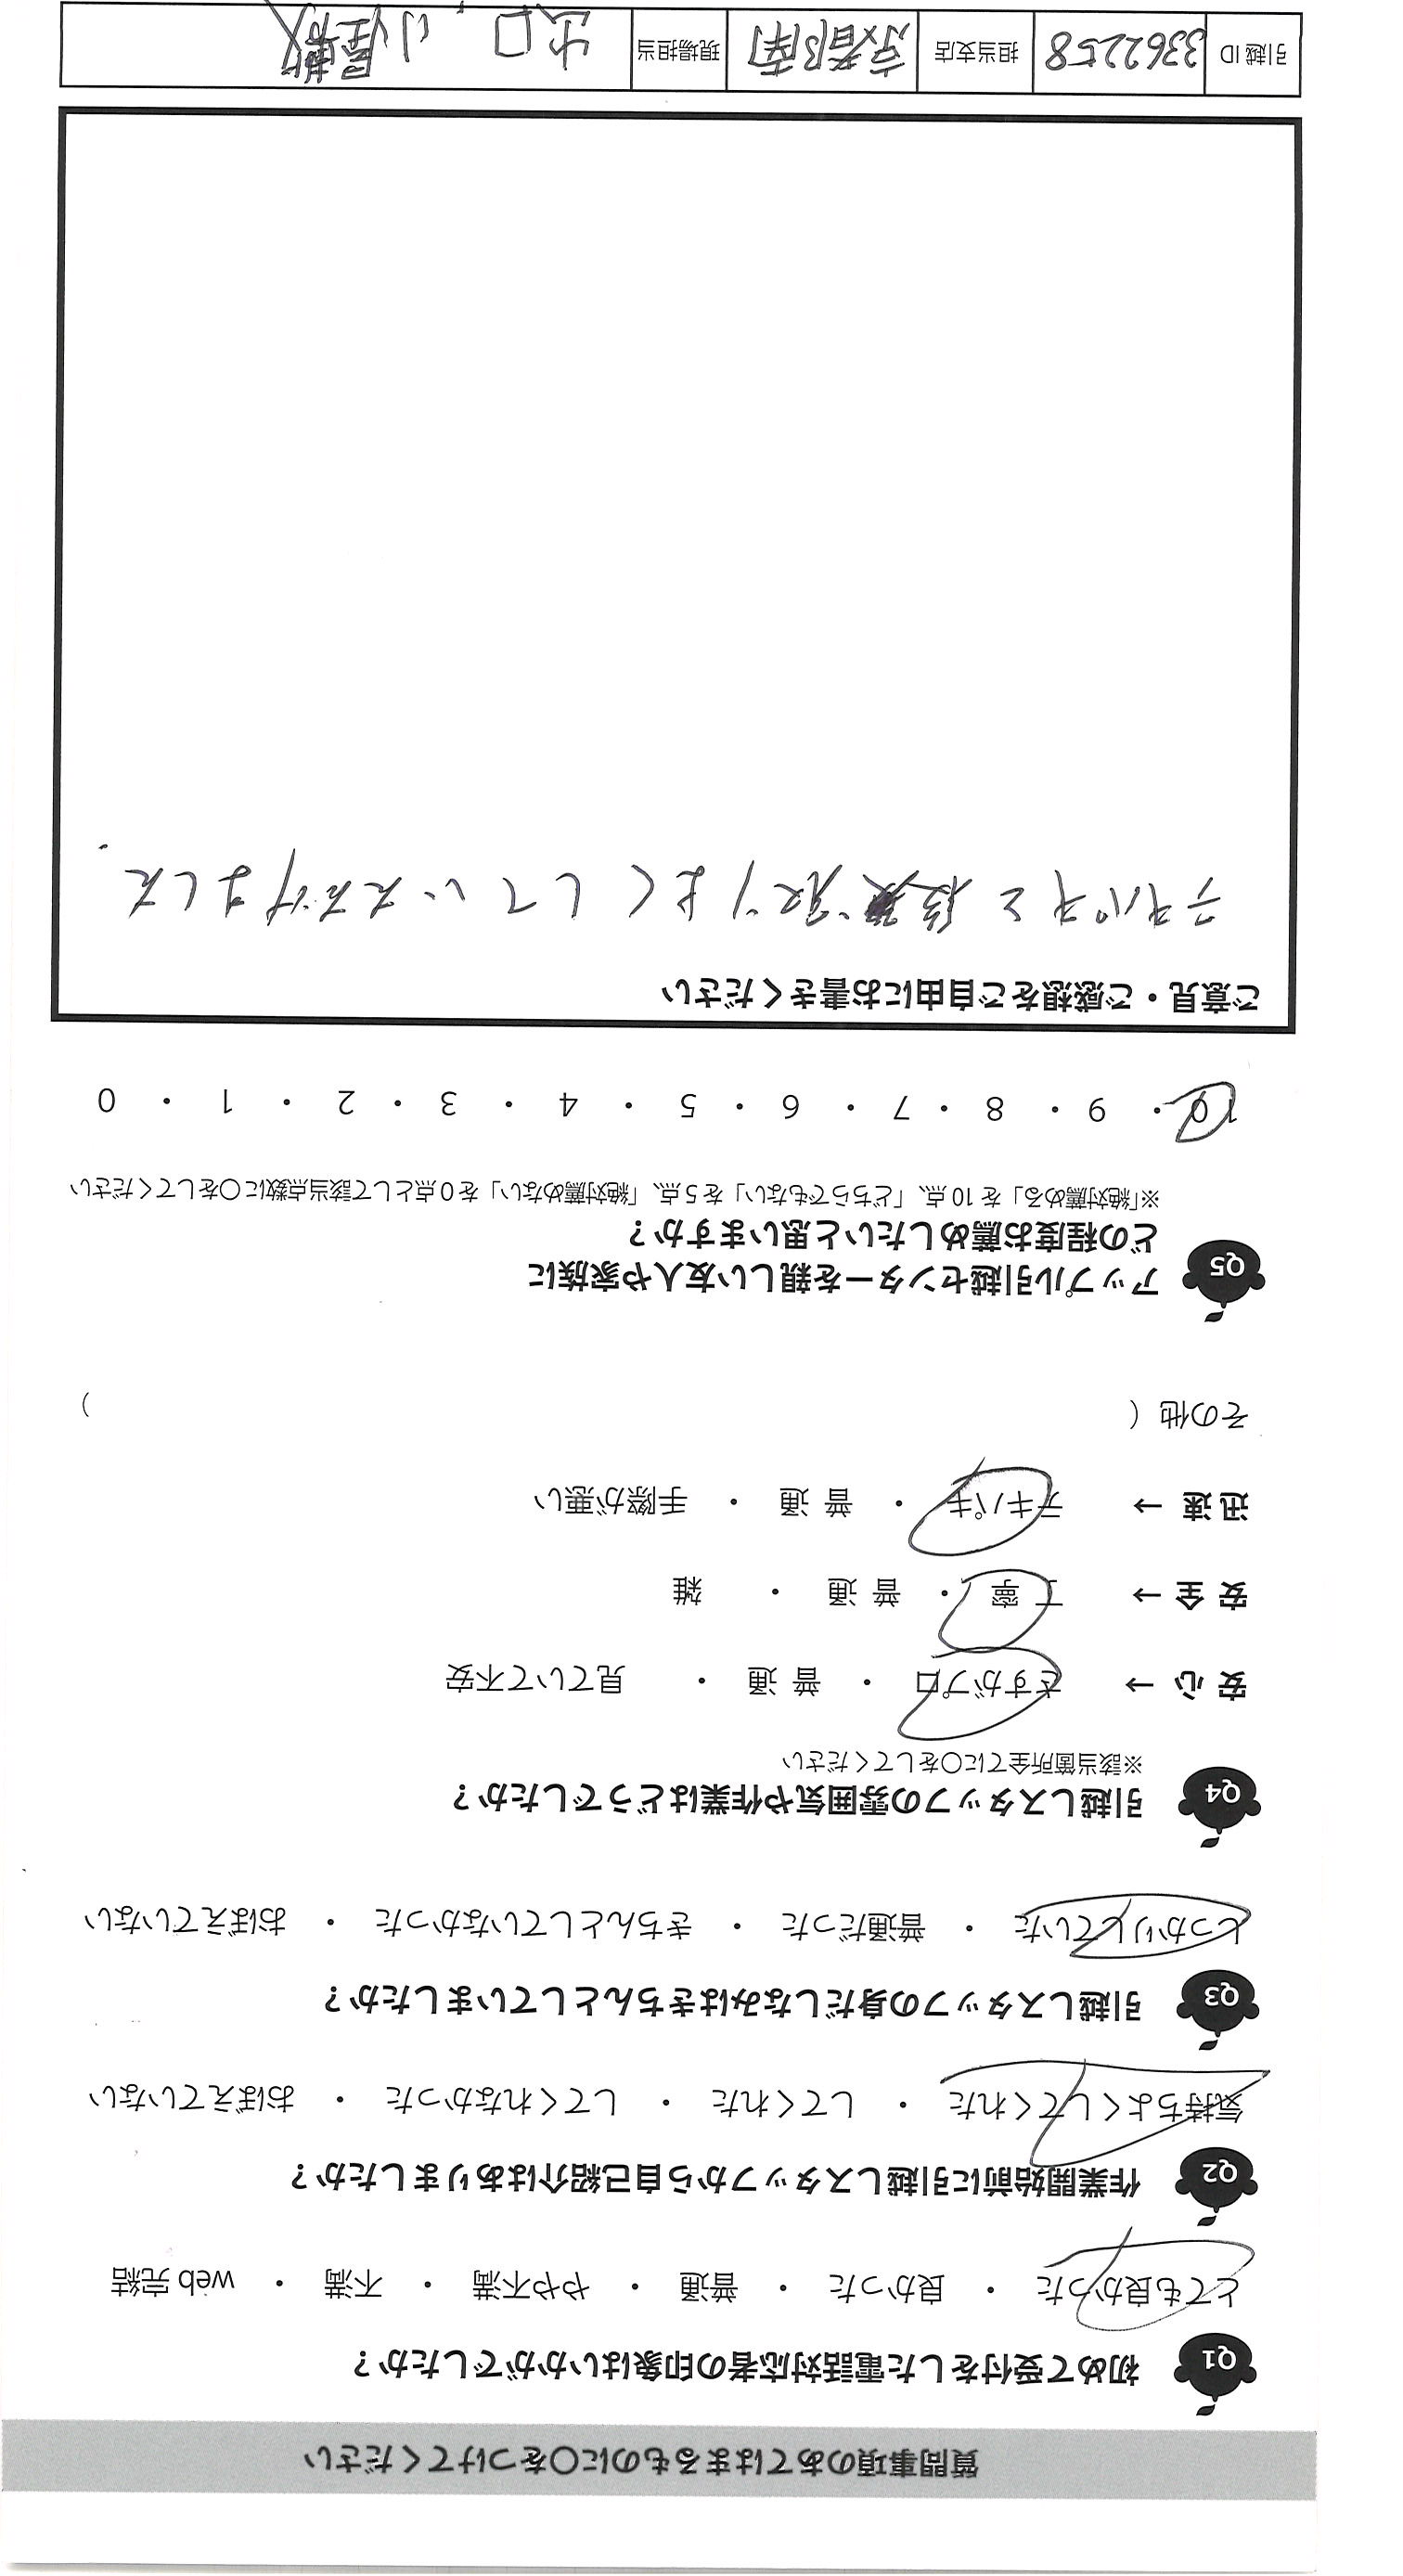 質問事項のあてはまるものに〇をつけてください
Q1 初めて受付をした電話対応者の印象はいかがでしたか？
とても良かった ・ 良かった ・ 普通 ・ やや不満 ・ 不満 ・ web 完結
Q2 作業開始前に引越しスタッフから自己紹介はありましたか？
気持ちよくしてくれた ・ してくれた ・ してくれなかった ・ おぼえていない
Q3 引越しスタッフの身だしなみはきちんとしていましたか？
しっかりしていた ・ 普通だった ・ きちんとしていなかった ・ おぼえていない
Q4 引越しスタッフの雰囲気や作業はどうでしたか？
※該当箇所全てに〇をしてください
安 心 → さすがプロ ・ 普 通 ・ 見ていて不安
安 全 → 丁 寧 ・ 普 通 ・ 雑
迅 速 → テキパキ ・ 普 通 ・ 手際が悪い
その他（ ）
Q5 アップル引越センターを親しい友人や家族に
どの程度お薦めしたいと思いますか？
※「絶対薦める」を 10 点、「どちらでもない」を 5 点、「絶対薦めない」を 0 点として該当点数に〇をしてください
10 ・ 9 ・ 8 ・ 7 ・ 6 ・ 5 ・ 4 ・ 3 ・ 2 ・ 1 ・ 0
ご意見・ご感想をご自由にお書きください
テキパキと段取りよくしていただけました.
引越 ID 3362258 担当支店 京都南 現場担当 出口, 小屋敷